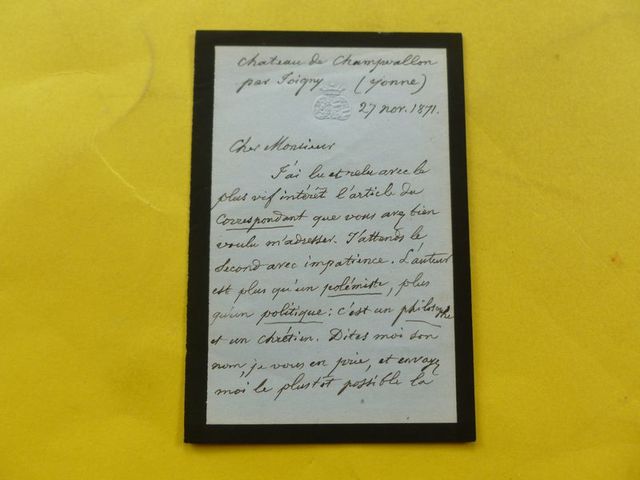 Chateau de Champvallon
par Joigny (Yonne)
27 nov. 1871.
Cher Monsieur
J'ai lu et relu avec le
plus vif intérêt l'article du
Correspondant que vous avez bien
voulu m'adresser. J'attends le
second avec impatience. L'auteur
est plus qu'un polémiste, plus
qu'un politique : c'est un philosophe
et un chrétien. Dites moi son
nom, je vous en prie, et envoyez
moi le plustôt possible la